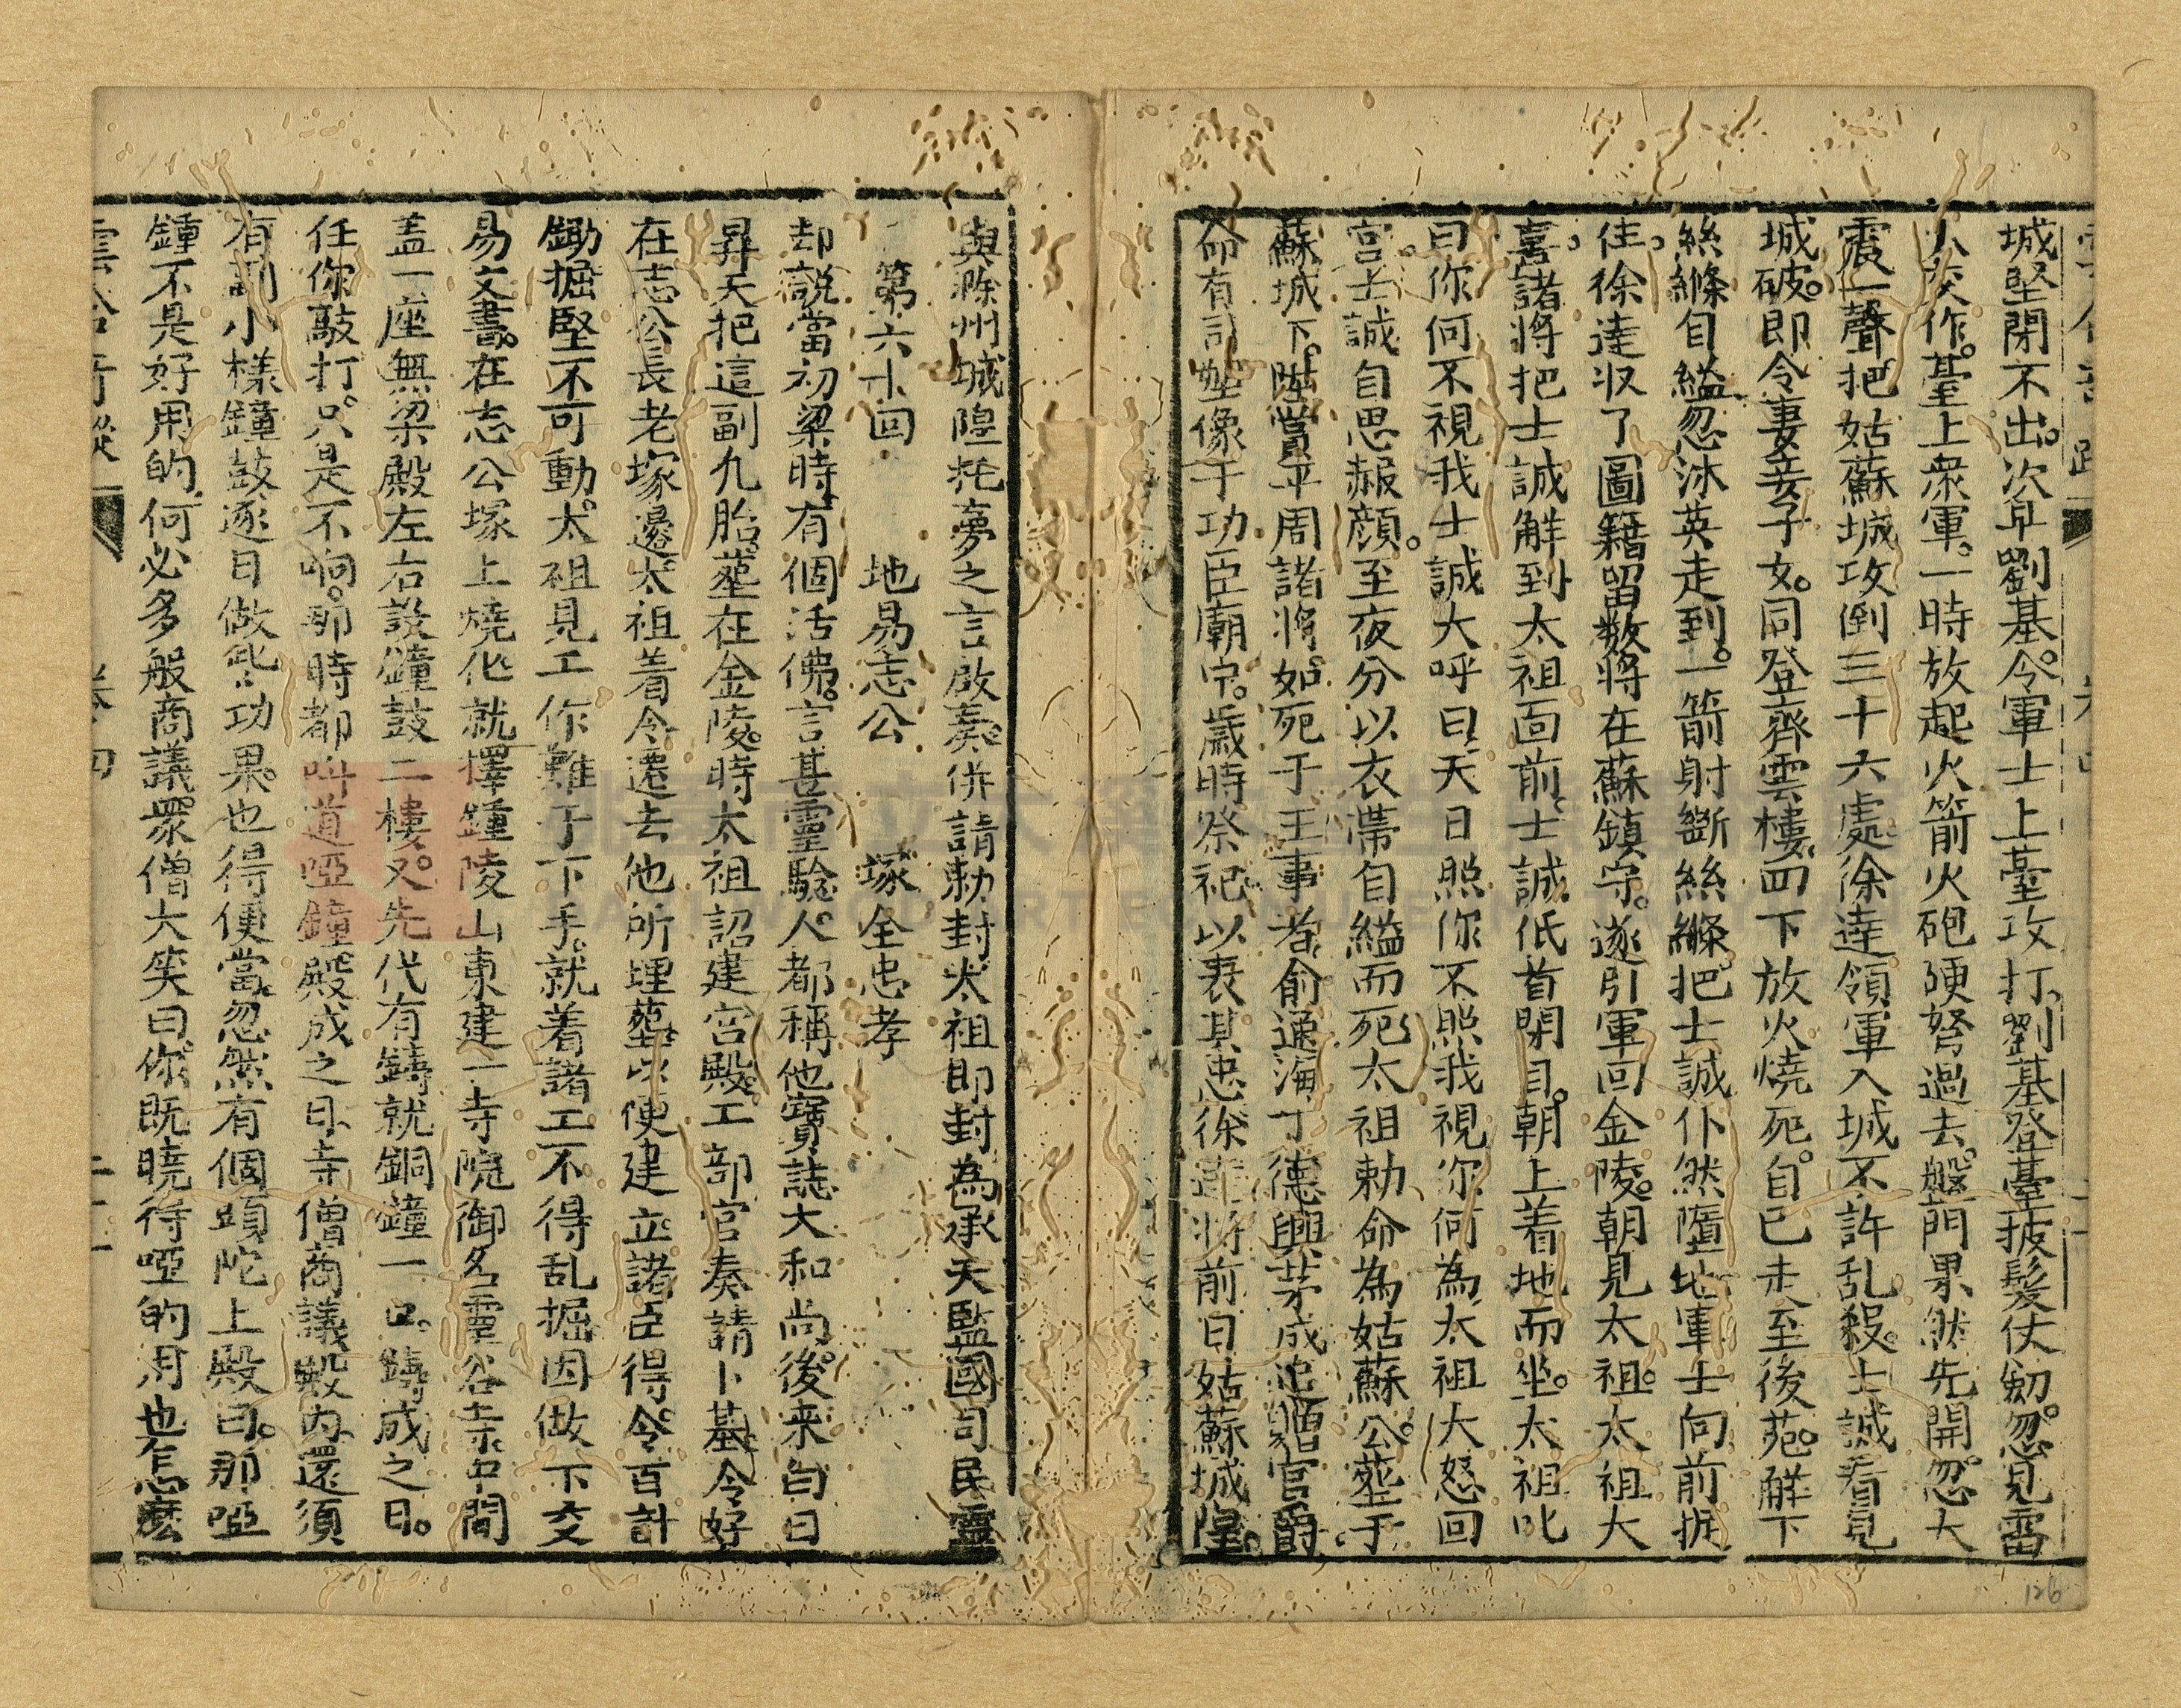 城堅閉不出。次早劉基。令軍士上臺攻打。劉基登臺披髮仗劍。忽見雷
火交作。臺上衆軍。一時放起火箭火砲硬弩過去。盤門果然先開。忽大
震一聲。把姑蘇城攻倒三十六處。徐達領軍入城不許乱殺。士誠看見
城破。即令妻妾子女。同登齊雲樓。四下放火燒死。自己走至後苑。解下
絲縧自縊。忽沐英走到。一箭射斷絲縧。把士誠仆然墮地。軍士向前拥
住。徐達収了圖籍。留数將在蘇鎮守。遂引軍回金陵。朝見太祖。太祖大
喜。諸將把士誠解到太祖面前。士誠低首閉目。朝上着地而坐。太祖叱
曰你何不視我士誠大呼曰。天日照你不照我視你何為。太祖大怒回
宮士誠自思赧顔。至夜分以衣帶自縊而死。太祖勅命為姑蘇公。塟于
蘇城下。陞賞平周諸將。如死于王事者。俞通海丁德興茅成追贈官爵
命有司塑像于功臣廟中。歲時祭祀以表其忠徐達將前日姑蘇城隍。
與滁州城隍托夢之言啟奏。併請勅封。太祖即封為承天監國司民靈
第六十回　地易志公　塚全忠孝
却説當初梁時。有個活佛。言甚靈驗。人都稱他寳誌大和尚。後来白日
昇天把這副凡胎。塟在金陵。時太祖詔建宮殿。工部官奏請卜基。令好
在志公長老塚邊。太祖着令遷去他所埋塟。以便建立。諸臣得令。百計
鋤掘堅不可動。太祖見工作難于下手。就着諸工不得乱掘因做下交
易文書。在志公塚上燒化就擇鍾陵山東建一寺院御名靈谷寺。中間
盖一座無梁殿左右設鐘鼓二樓。又先代有鑄就銅鐘一口。鑄成之日。
任你敲打。只是不响。那時都呌道啞鐘。殿成之日寺僧商議殿内還須
有副小樣鐘鼓逐日做些功果。也得便當。忽然有個頭陀上殿曰。那啞
鍾不是好用的。何必多般商議。衆僧大笑曰。你既曉得啞的用也乍怎麽
雲合竒蹤